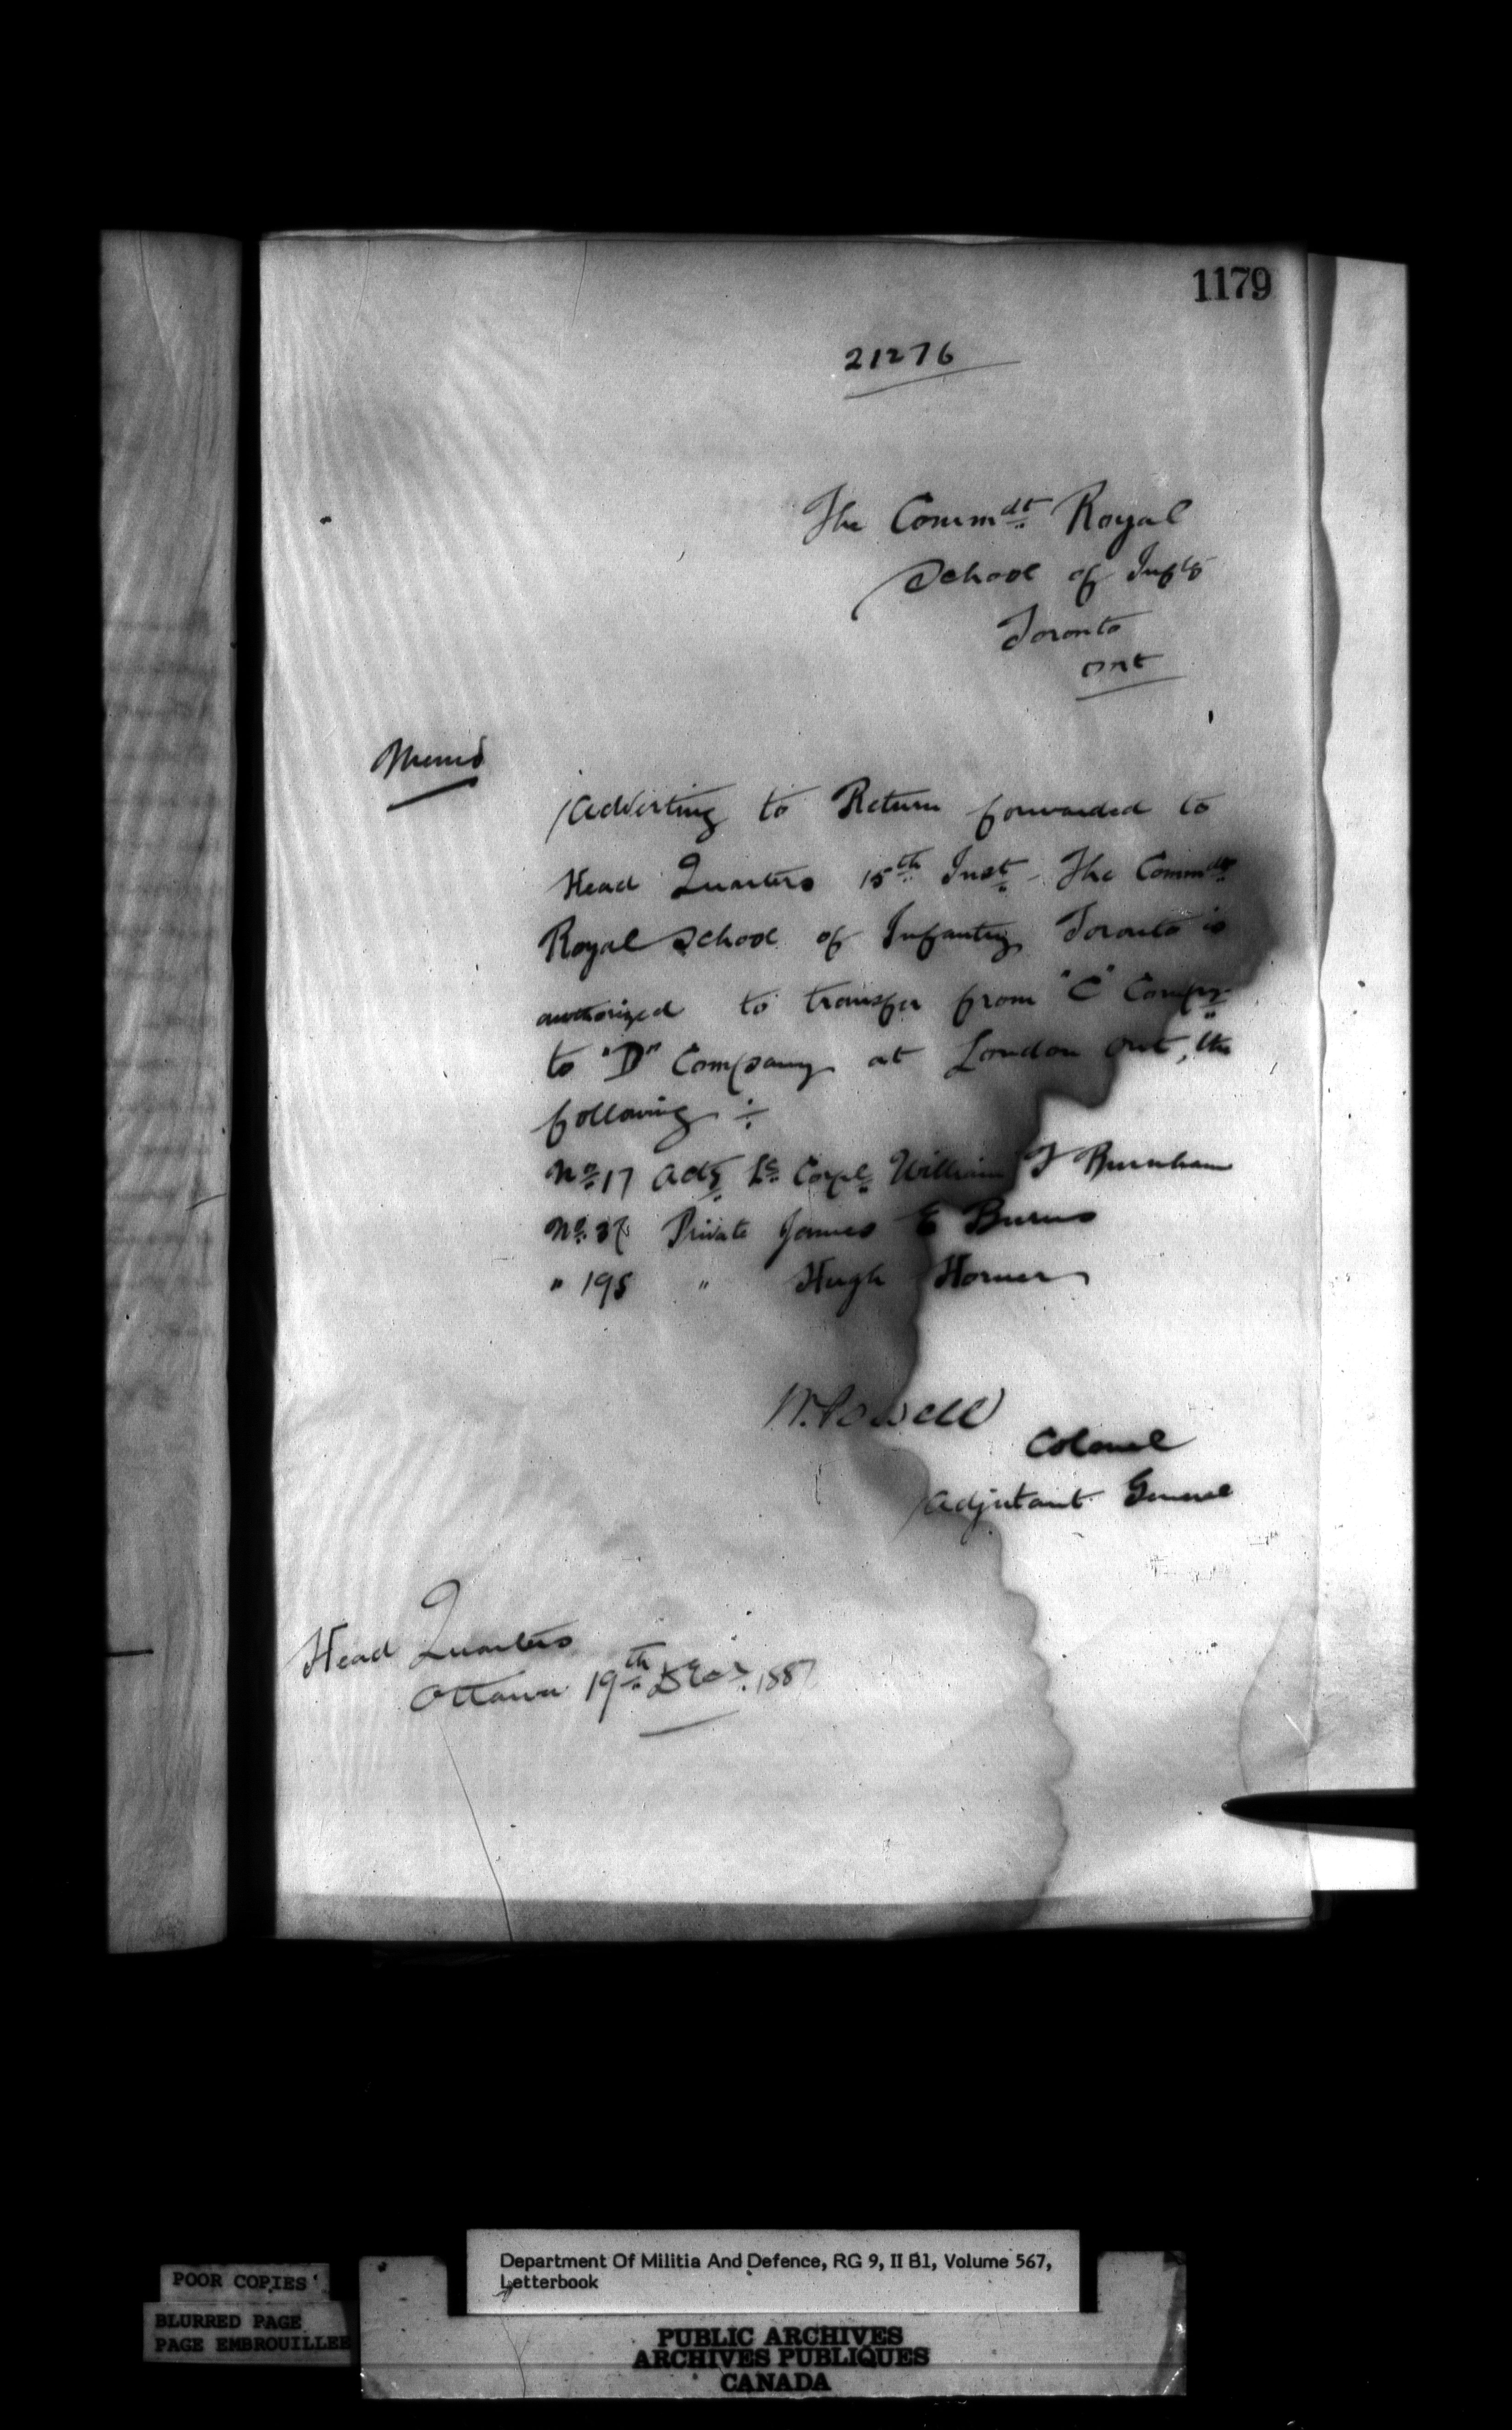 1179
21276
The Commdt Royal
School of Infty
Toronto
Ont
Memo
Adverting to Return forwarded to
Head Quarters 15th Inst - The Commdt
Royal School of Infantry Toronto is
authorized to transfer from "C" Compy
to "D" Company at London Ont, the
following :-
No 17 Actg Lc Corpl William Burnham
No Private James E Burns
" 195 " Hugh Horner
W. Powell
Colonel
Adjutant General
Head Quarters
Ottawa 19th Decr. 1887
Department Of Militia And Defence, RG 9, II B1, Volume 567,
Letterbook
POOR COPIES
BLURRED PAGE
PAGE EMBROUILLEE
PUBLIC ARCHIVES
ARCHIVES PUBLIQUES
CANADA